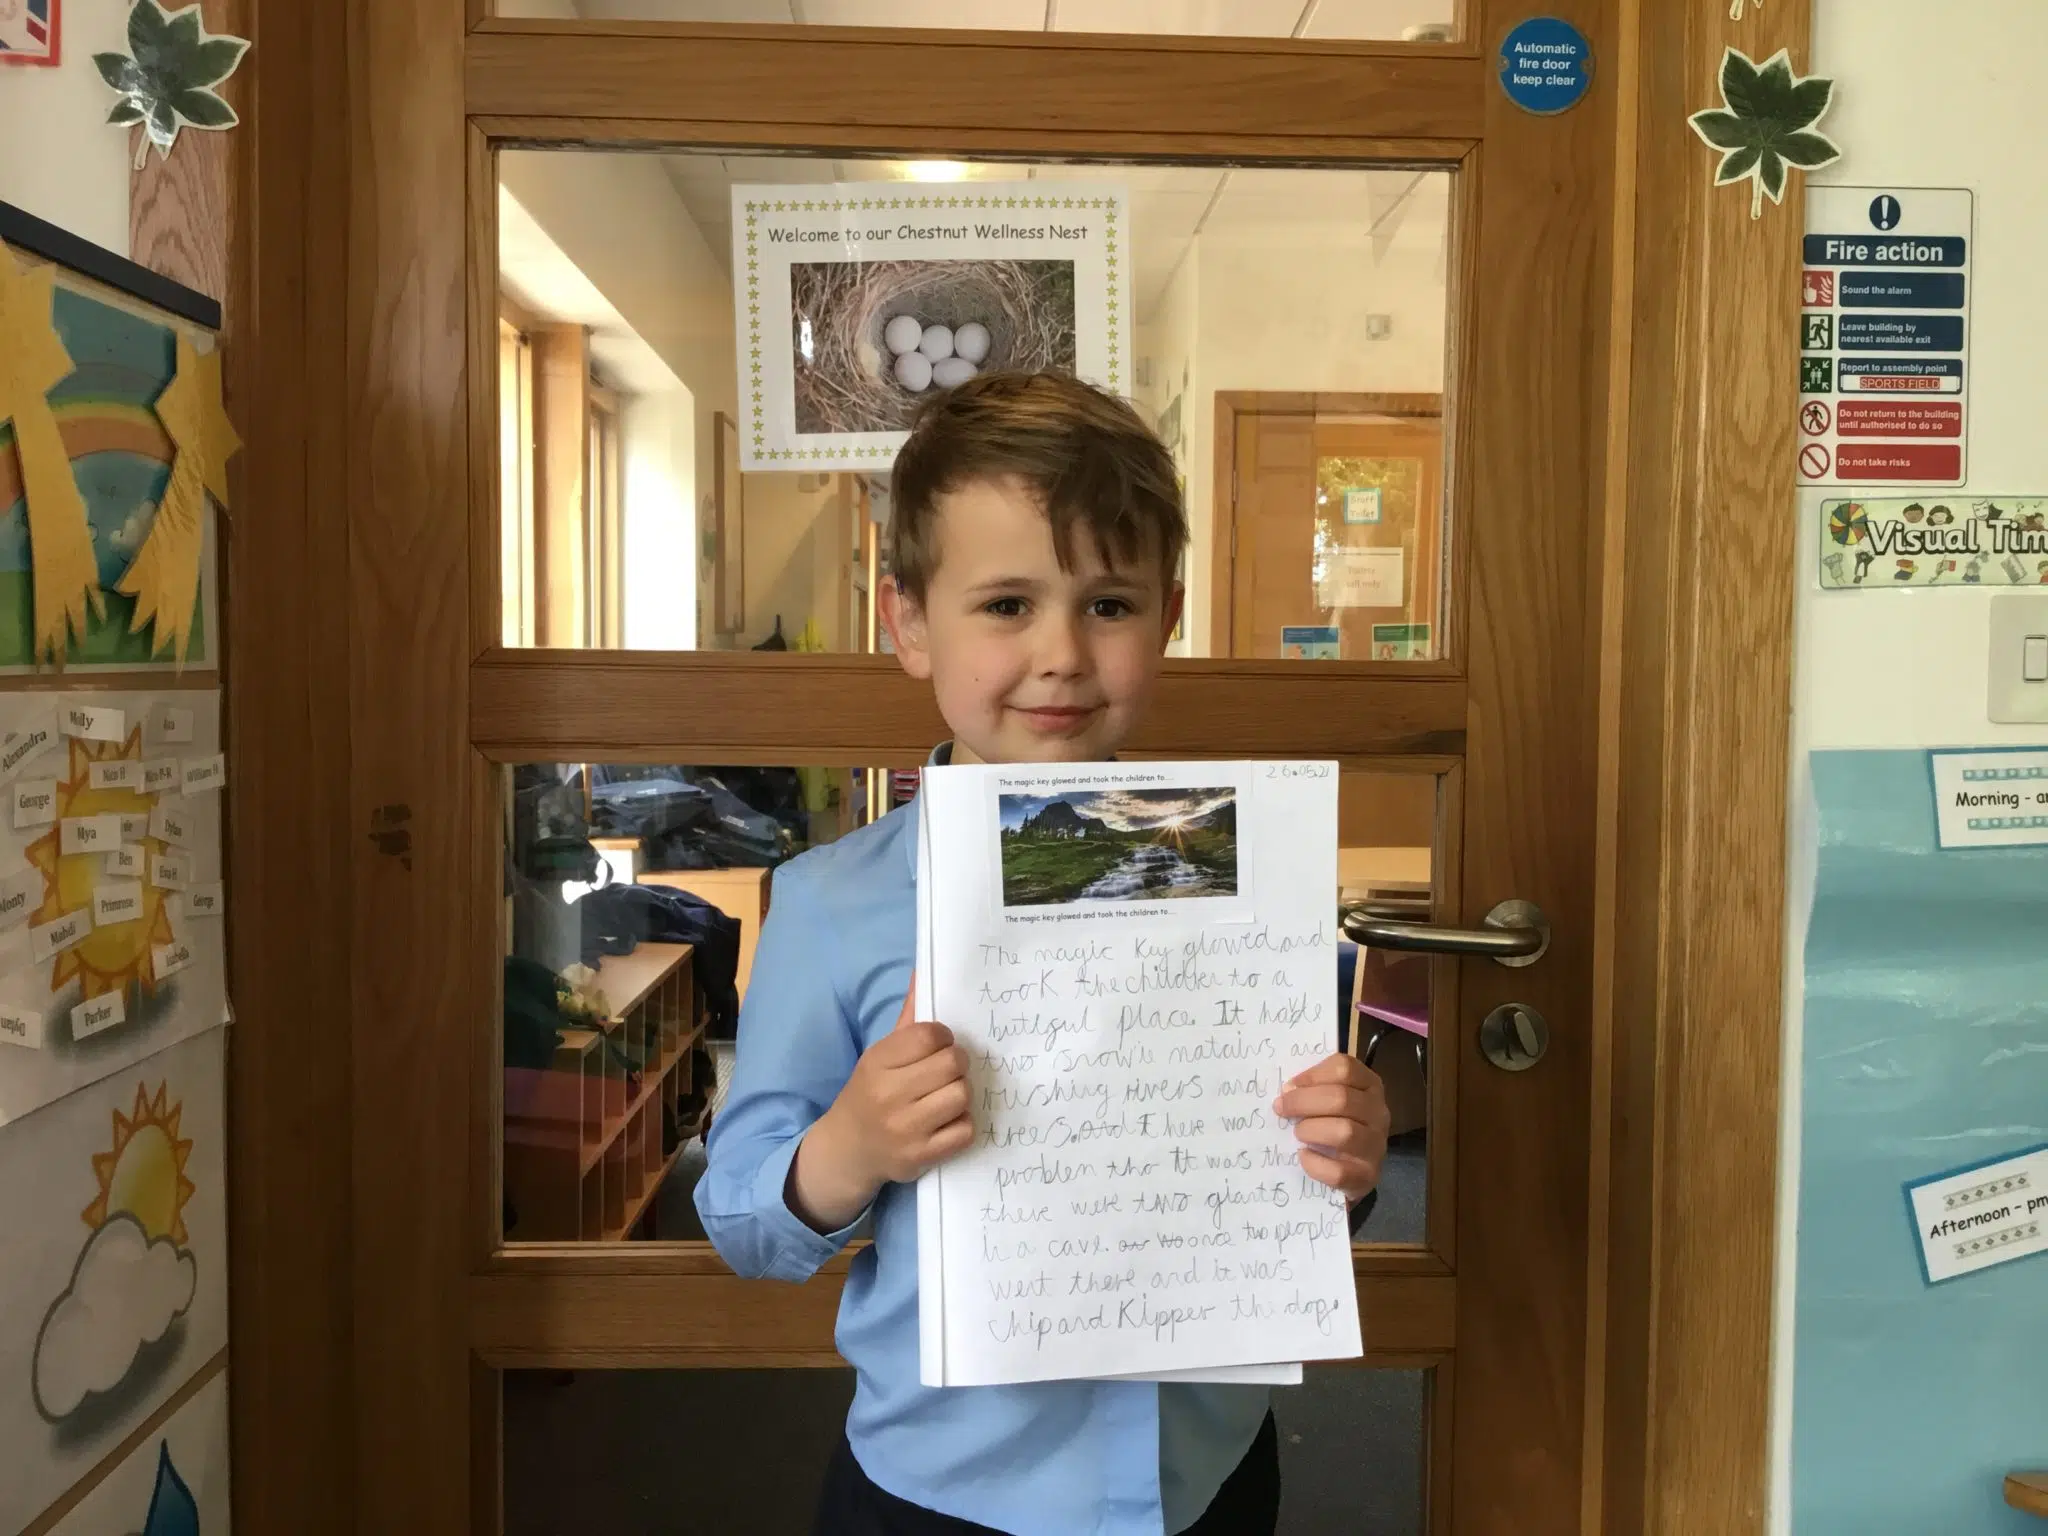 Automatic
fire door
keep clear
Welcome to our Chestnut Wellness Nest
Fire action
Sound the alarm
Leave building by
nearest available exit
Report to assembly point
SPORTS FIELD
Do not return to the building
until authorised to do so
Do not take risks
Staff
Toilet
Visual Tim
Morning - a
Afternoon - pm
Molly
Alexandra
Nico H
Nico P-R
William H
George
Mya
Dylan
Ben
Eva H
Monty
Primrose
George
Mahdi
Isabella
Parker
Dylan
The magic key glowed and took the children to....
26.05.21
The magic key glowed and took the children to....
The magic key glowed and
took the children to a
butifgul place. It have
two snowie natains and
rushing rivers and
trees. and There was a
problem tho It was tha
there were two giants livi
in a cave. once two people
went there and it was
chip and Kipper the dog.